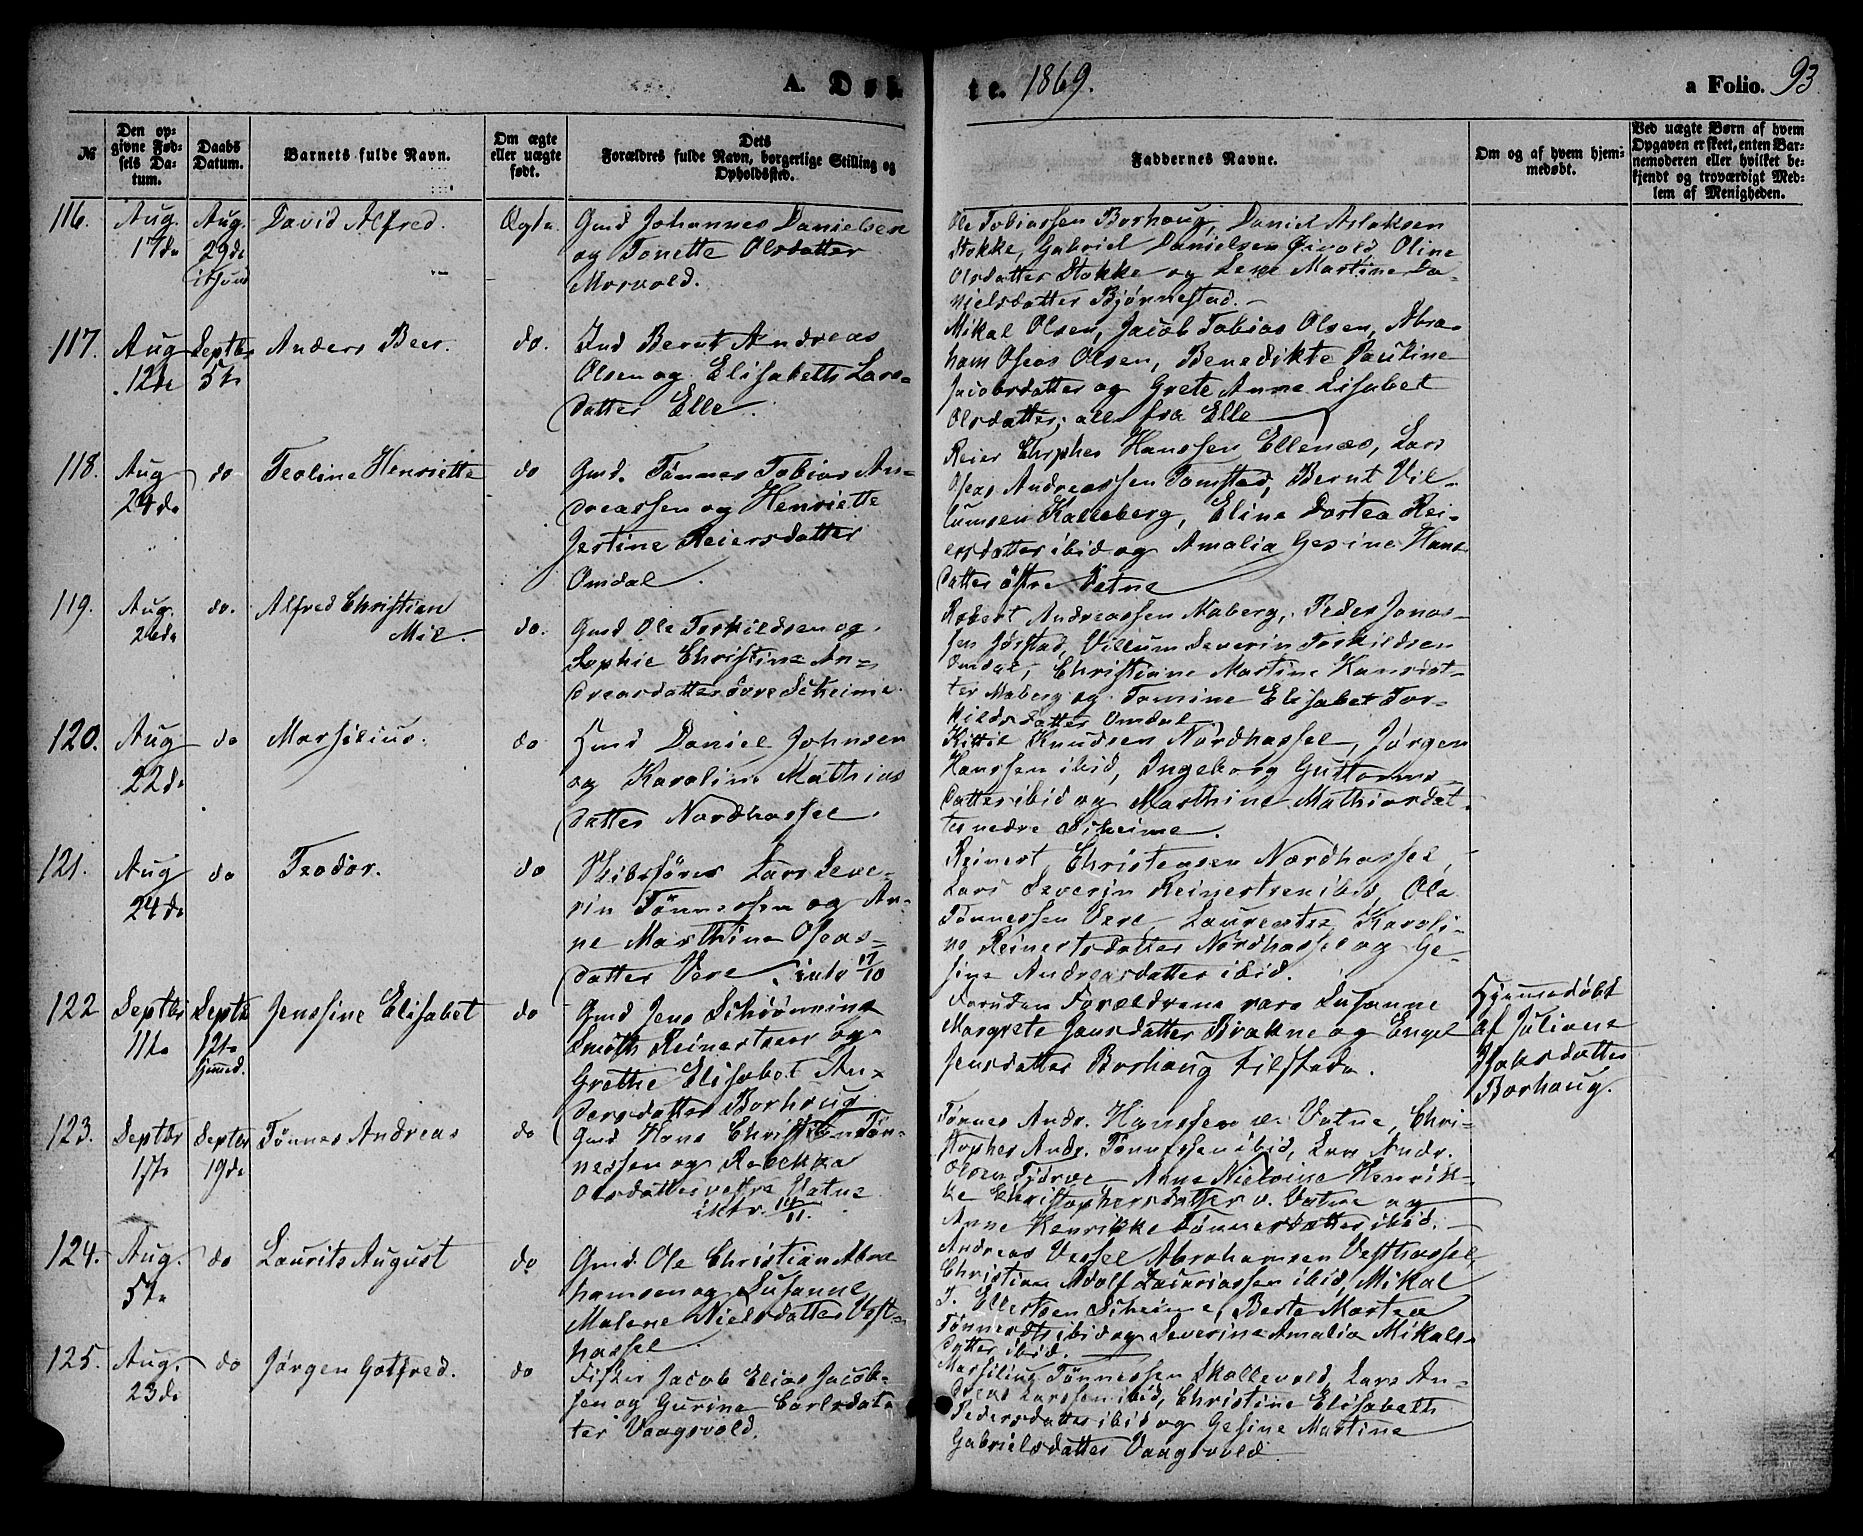 A. Døb
te. 1869.
a Folio. 93
№
Den op-
givne Fød-
sels Da-
tum.
Daabs
Datum.
Barnets fulde Navn.
Om ægte
eller uægte
født.
Dets
Forældres fulde Navn, borgerlige Stilling og
Opholdssted.
Faddernes Navne.
Om og af hvem hjem-
medøbt.
Ved uægte Børn af hvem
Opgaven er skeet, enten Bar-
nemoderen eller hvilket be-
kjendt og troværdigt Med-
lem af Menigheden.
116.
Aug.
17de
Aug.
29de
David Alfred.
Ægte
Gmd Johannes Danielsen
og Tonette Olsdatter
Morvold.
Ole Tobiassen Borhaug, Daniel Aslaksen
Stokke, Gabriel Danielsen Øivold, Oline
Olsdatter Stokke og Lene Martine Da-
nielsdatter Bjørnestad.
117.
Aug
12te
Septbr
5te
Anders Beer.
do.
Ind Bernt Andreas
Olsen og Elisabeth Lars-
datter Elle.
Mikal Olsen, Jacob Tobias Olsen, Abra-
ham Oseas Olsen, Benedikte Pauline
Jacobsdatter og Grete Anne Lisabet
Olsdatter, alle fra Elle
118.
Aug
24de
do
Teoline Henriette
do
Gmd. Tønnes Tobias An-
dreassen og Henriette
Jertine Reiersdatter
Omdal.
Reier Chrpher Hanssen Ellenæs, Lars
Oseas Andreassen Tomstad, Bernt Vil-
lumsen Kalleberg, Eline Dortea Rei-
ersdatter ibid og Amalia Gesine Hans-
datter østre Vatne
119.
Aug.
26de
do.
Alfred Christian
Mil.
do.
Gmd Ole Torkildsen og
Sophie Christine An-
dreasdatter øvre Skeime.
Robert Andreassen Maberg, Peder Jonas-
sen Jørstad, Villum Severin Torkildsen
Omdal, Christiane Martine Hansdat-
ter Maberg og Tomine Elisabet Tor-
kildsdatter Omdal.
120.
Aug
22de
do
Marsilius.
do
Hmd Daniel Johnsen
og Karoline Mathias
datter Nordhassel.
Kittil Knudsen Nordhassel, Jørgen
Hanssen ibid, Ingeborg Guttorms-
datter ibid og Marthine Mathiasdat-
ter nedre Skeime.
121.
Aug
24de
do
Teodor.
do
Skibsfører Lars Seve-
rin Tønnessen og An-
ne Marthine Oseas-
datter Vere. 17/10
Reinert Christensen Nordhassel,
Lars Severin Reinertsen ibid, Ole
Tønnessen Vere, Laurentze Karoli-
ne Reinertsdatter Nordhassel og Ge-
sine Andreasdatter ibid.
122
Septbr
11te
Septbr
12te
hjmd.
Jenssine Elisabet
do
Gmd Jens Schrønning
Smith Reinertsen og
Grethe Elisabet An-
dersdatter Borhaug
Foruden Forældrene vare Susanne
Margrete Jansdatter Brække og Engel
Jensdatter Borhaug tilstede.
Hjemmedøbt
af Juliane
Jakobsdatter
Borhaug.
123.
Septbr
17de
Septbr
19de
Tønnes Andreas
do
Gmd Hans Christian Tøn-
nessen og Rebekka
Olsdatter vestre Vatne
Tønnes Andr. Hanssen v. Vatne, Chri-
stopher Andr. Tønnessen ibid, Lars Andr.
Olsen Tjørve, Anne Nielsine Henrik-
ke Christophersdatter v. Vatne og
Anne Henrikke Tønnesdatter ibid.
124.
Aug.
5te
do
Laurits August
do
Gmd. Ole Christian Abra
hamsen og Susanne
Malene Nielsdatter Vest-
hassel.
Andreas Vessel Abrahamsen Vesthassel,
Christian Adolf Zakariassen ibid, Mikal
T. Ellertsen Skeime, Berte Martea
Tønnesdtr ibid og Severine Amalia Mikals-
datter ibid.
125.
Aug.
23de
do
Jørgen Gotfred.
do
Fisker Jacob Elias Jacob-
sen og Gurine Carlsdat-
ter Vaagsvold.
Marsilius Tønnessen Skollevold, Lars An-
dreas Larssen ibid, Christine Elisabeth
Pedersdatter ibid og Gesine Martine
Gabrielsdatter Vaagsvold.